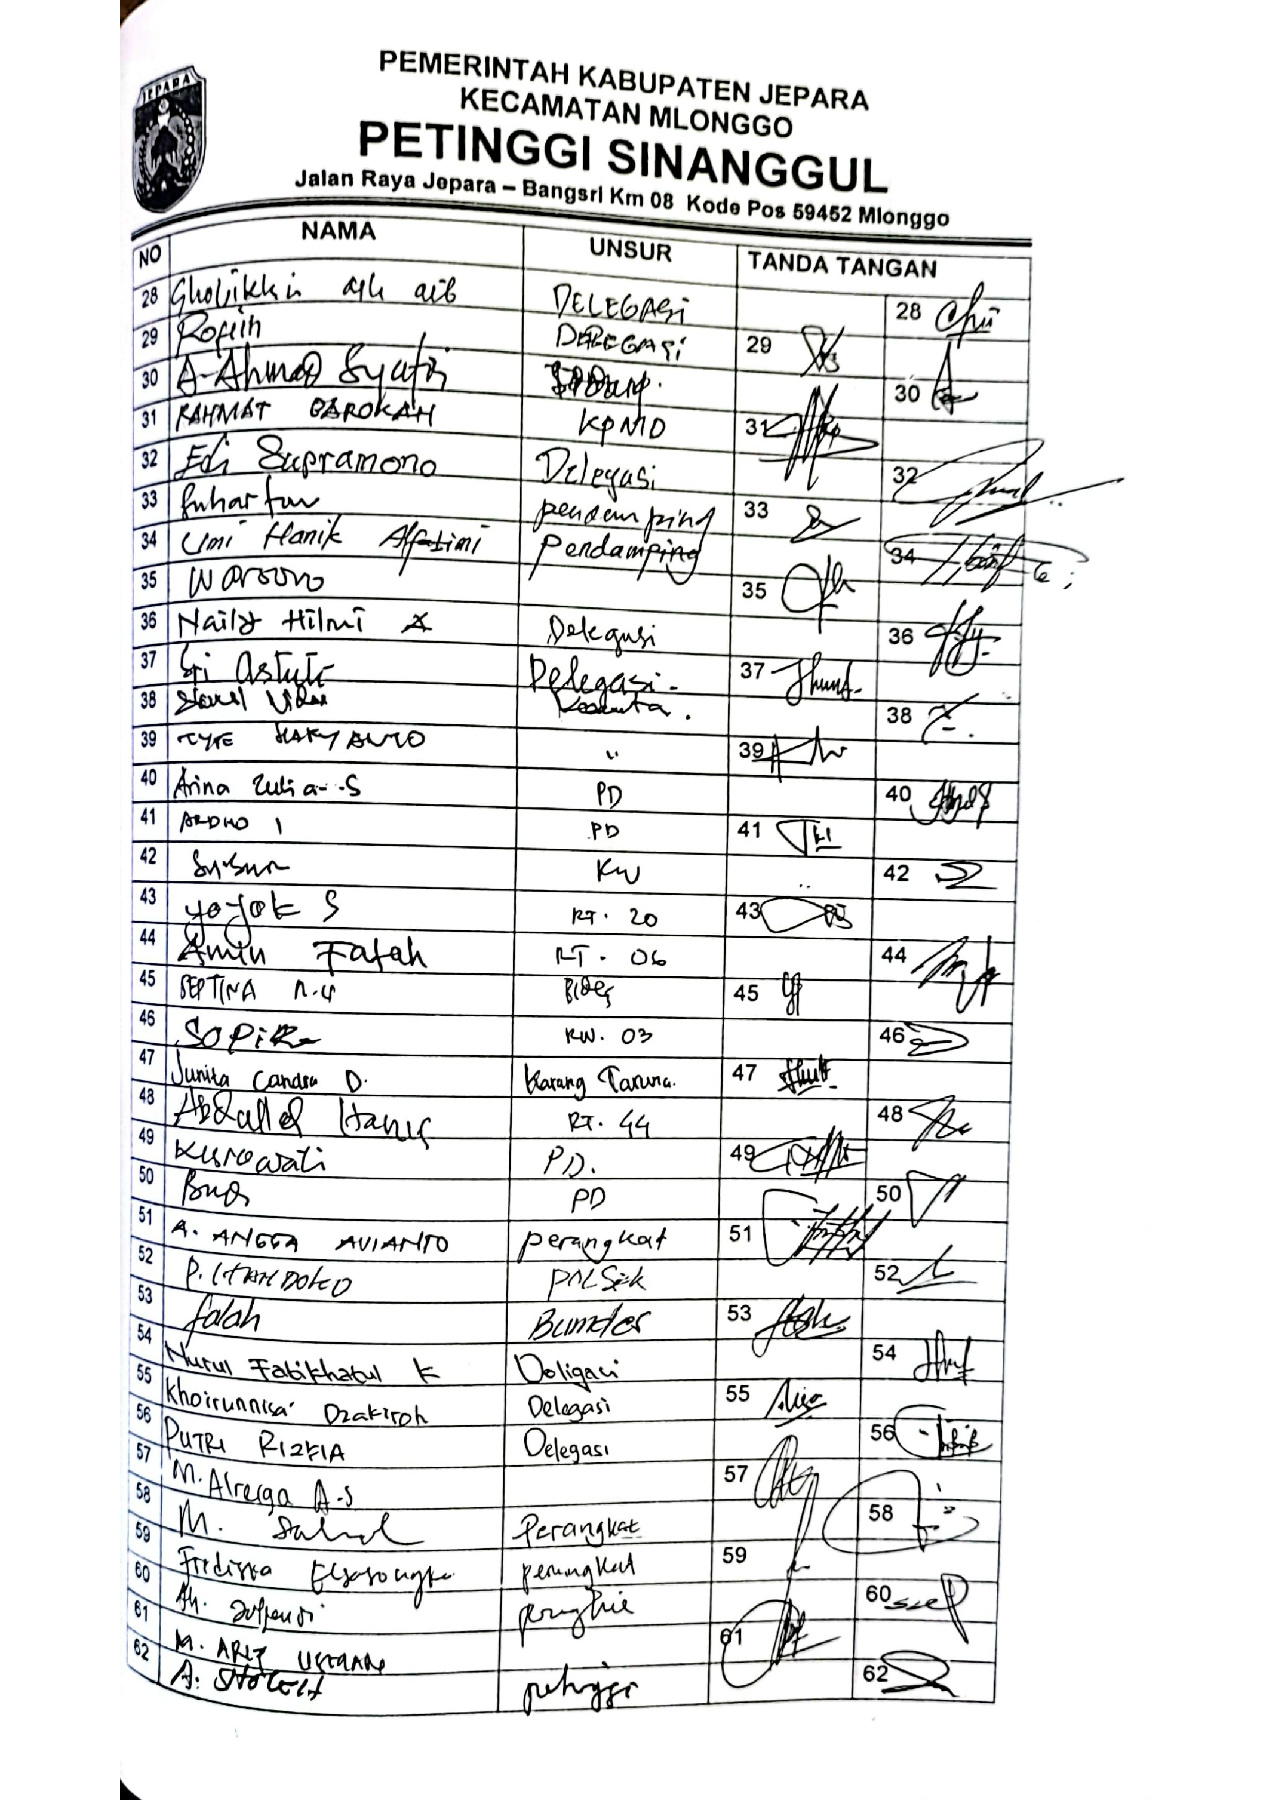 JEPARA
PEMERINTAH KABUPATEN JEPARA
KECAMATAN MLONGGO
PETINGGI SINANGGUL
Jalan Raya Jepara – Bangsri Km 08 Kode Pos 59452 Mlonggo
NO NAMA UNSUR TANDA TANGAN
28 DELEGASI 28
29 Rofiih DELEGASI 29
30 A. Ahmad Syafii 30
31 RAHMAT BAROKAH KPMD 31
32 Edi Supramono Delegasi 32
33 Suhartun pendamping 33
34 Umi Hanik Pendamping 34
35 Warsono 35
36 Naily Hilmi A Delegasi 36
37 Sri Astuti Delegasi. 37
38 38
39 HARYANTO " 39
40 Arina Zulia S PD 40
41 ARDHO I PD 41
42 Subur KW 42
43 yoyok S RT. 20 43
44 Amin Fatah RT. 06 44
45 SEPTINA N.U 45
46 RW. 03 46
47 Junita Candra D. Karang Taruna. 47
48 Abdullah RT. 44 48
49 Kusowati PD. 49
50 PD 50
51 A. ANGGA AVIANTO perangkat 51
52 P. HANDOKO POLSEK 52
53 falah Bumdes 53
54 Nurul Fatikhatul K 54
55 Khoirunnisa' Dzakiroh Delegasi 55
56 PUTRI RIZKIA Delegasi 56
57 M. A.S 57
58 M. Perangkat 58
59 perangkat 59
60 Ah. 60
61 M. 61
62 A. SHOLEH petinggi 62